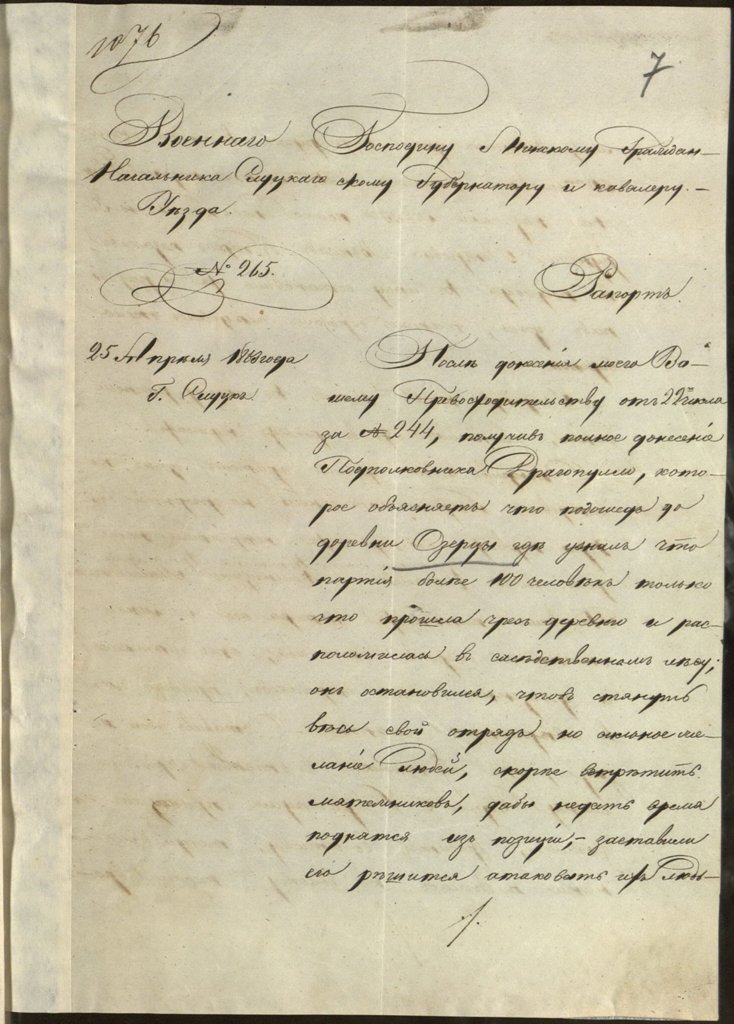 1076
7
Военнаго
Начальника Слуцкаго
Уѣзда.
№ 265.
25 Апрѣля 1863 года
Г. Слуцкъ
Господину Минскому Граждан-
скому Губернатору и кавалеру.-
Рапортъ
Послѣ донесенія моего Ва-
шему Превосходительству отъ 22 числа
за № 244, получивъ полное донесеніе
Подполковника Драгопуло, кото-
рое объясняетъ что подошедъ до
деревни Озерцы гдѣ узналъ что
партія болѣе 100 человѣкъ только
что прошла чрезъ деревню и рас-
положилась въ лѣсу;
онъ остановился, чтобъ стянуть
весь свой отрядъ но сильное же-
ланіе людей, скорѣе встрѣтить
мятежниковъ, дабы недать время
поднятся изъ позиціи,- заставили
его рѣшится атаковать ихъ Людь-